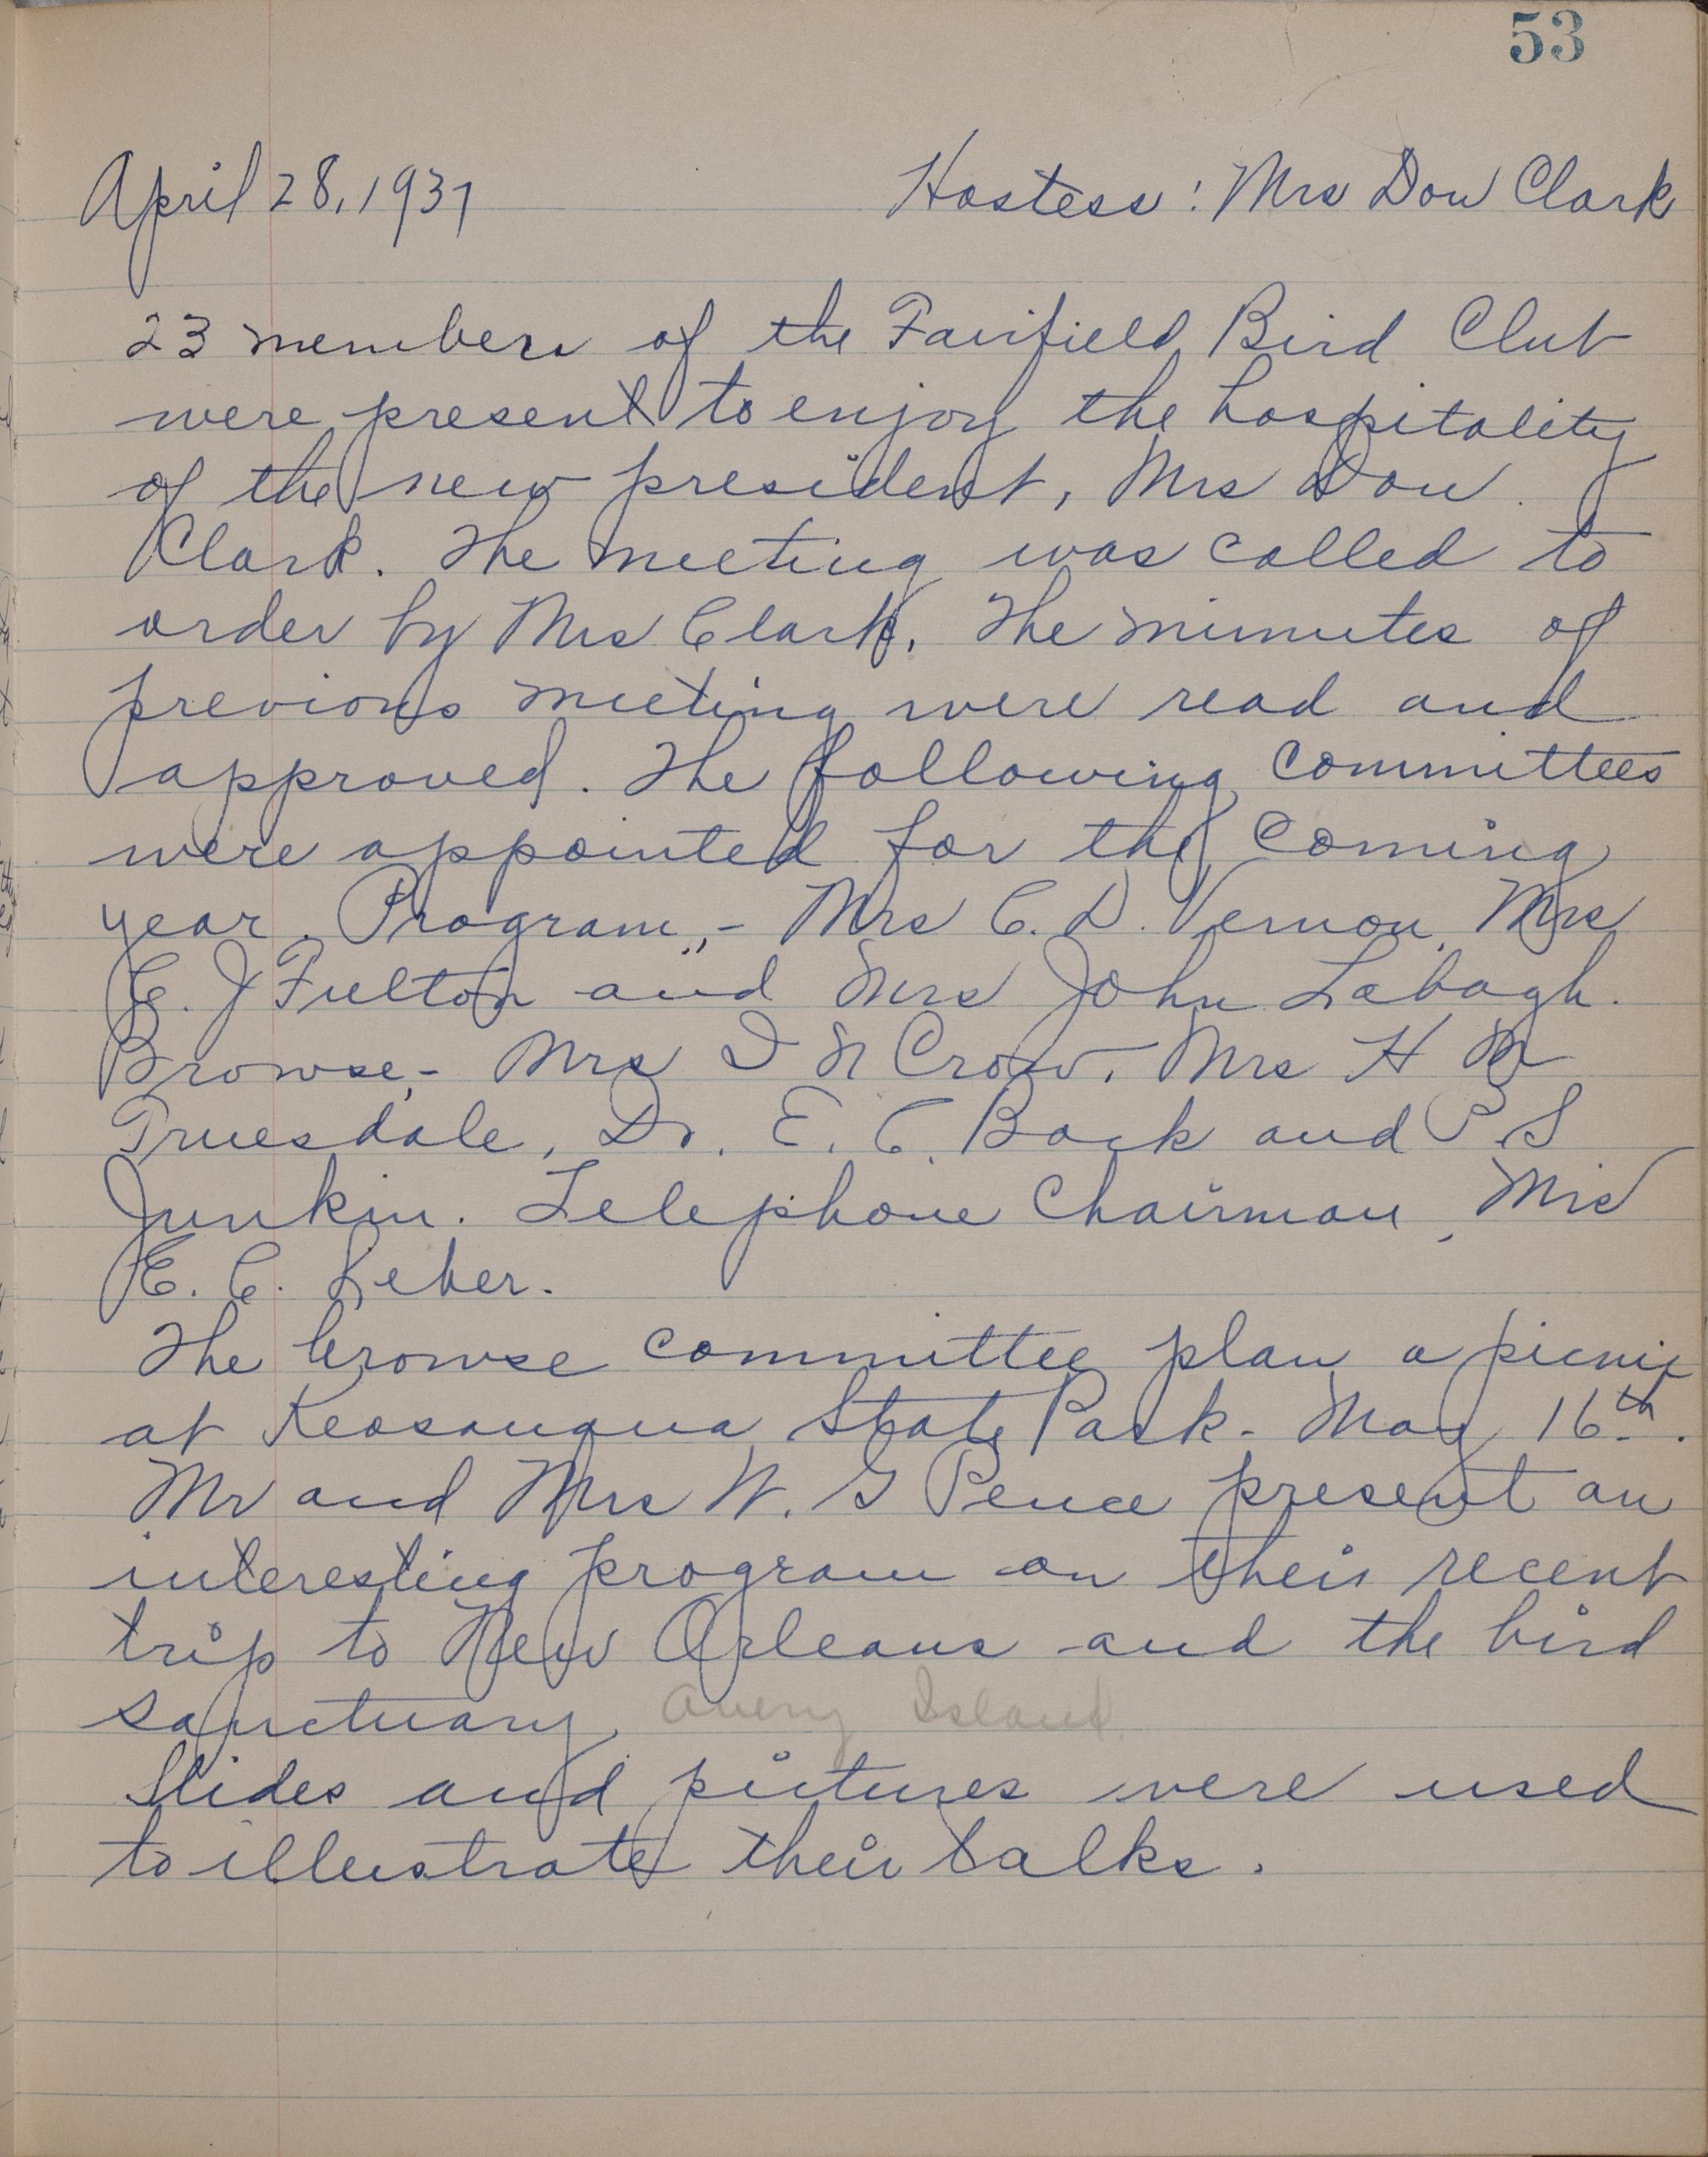 53
April 28, 1937 Hostess: Mrs Don Clark
23 members of the Fairfield Bird Club
were present to enjoy the hospitality
of the new president, Mrs Don
Clark. The meeting was called to
order by Mrs Clark. The minutes of
previous meeting were read and
approved. The following committees
were appointed for the coming
year. Program,- Mrs C. D. Vernon, Mrs
C. J Fulton and Mrs John Labagh.
Browse,- Mrs I N Crow, Mrs H M
Truesdale, Dr. E. C. Bock and P S
Junkin. Telephone Chairman, Mrs
E. C. Leber.
The browse committee plan a picnic
at Keosauqua State Park - May 16th.
Mr and Mrs W. G Pence present an
interesting program on their recent
trip to New Orleans and the bird
sanctuary, Avery Island
Slides and pictures were used
to illustrate their talks.